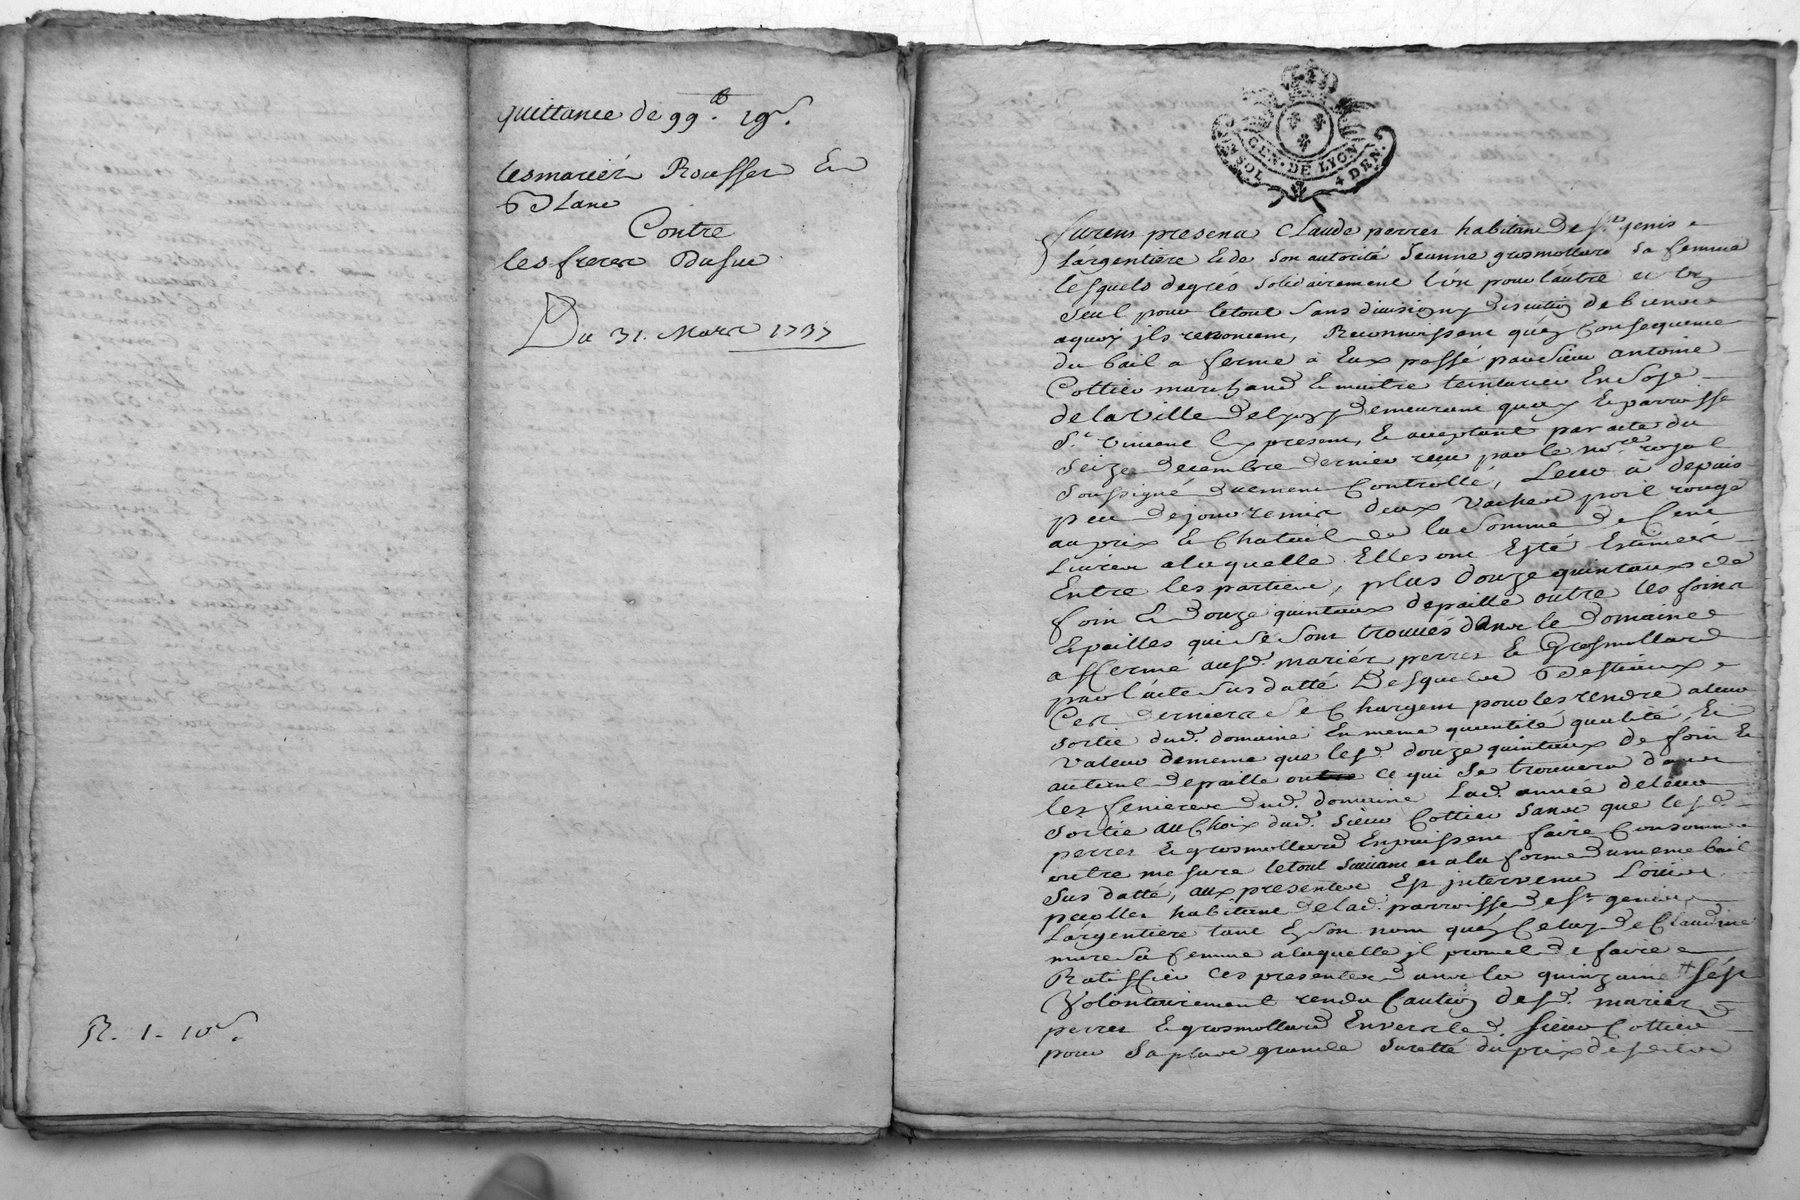 quittance de 99 lt. 19 s.
les mariés Rousset Et
Blanc
Contre
les freres Dusuc
Du 31. Mars 1737
R. 1 - 10 s.
GEN. DE LYON
SOL 4 DEN.
furent presents Claude perret habitant de St. genis
L'argentiere Et de son autorité Jeanne grosmollard sa femme
lesquels de gréó solidairement l'un pour l'autre et un
seul pour le tout sans division ny discution de biens
a quoy ils renoncent, Reconnoissent qu'en Consequence
du bail a ferme a Eux passé par sieur antoine
Cottier marchand Et maitre teinturier En soye
de la Ville de lyon y demeurant quay Et parroisse
St. Vincent Cy present, Et acceptant par acte du
seize decembre dernier reçu par le nore. royal
soussigné duement Controllé, Leur à depuis
peu de jours remis deux Vaches poil rouge
au prix Et Chatail de la somme de Cent
Livres a laquelle Elles ont Esté Estimées
Entre les parties, plus douze quintaux de
foin Et douze quintaux de paille outre les foins
Et pailles qui se sont trouvés dans le domaine
affermé ausd. mariés perret Et Grosmollard
par l'acte sus datté Desquels Bestiaux
Ces derniers se Chargent pour les rendre a leur
sortie dud. domaine En meme quantité qualité, Et
Valeur de meme que lesd. douze quintaux de foin Et
autant de paille outre ce qui se trouvera dans
les fenieres dud. domaine Lad. année de leur
sortie au Choix dud. sieur Cottier sans que lesd.
perret Et grosmollard En puissent faire Consommer
outre mesure le tout suivant et a la forme du meme bail
sus datté, aux presentes Est intervenu Louis
peollet habitant de lad. parroisse de St. genis
L'argentiere tant En son nom qu'en Celuy de Claudine
mure sa femme a laquelle il promet de faire
Ratiffier ces presentes dans la quinzaine # s'est
Volontairement rendu Caution desd. mariés
perret Et grosmollard Envers led. sieur Cottier
pour sa plus grande suretté du prix desdites